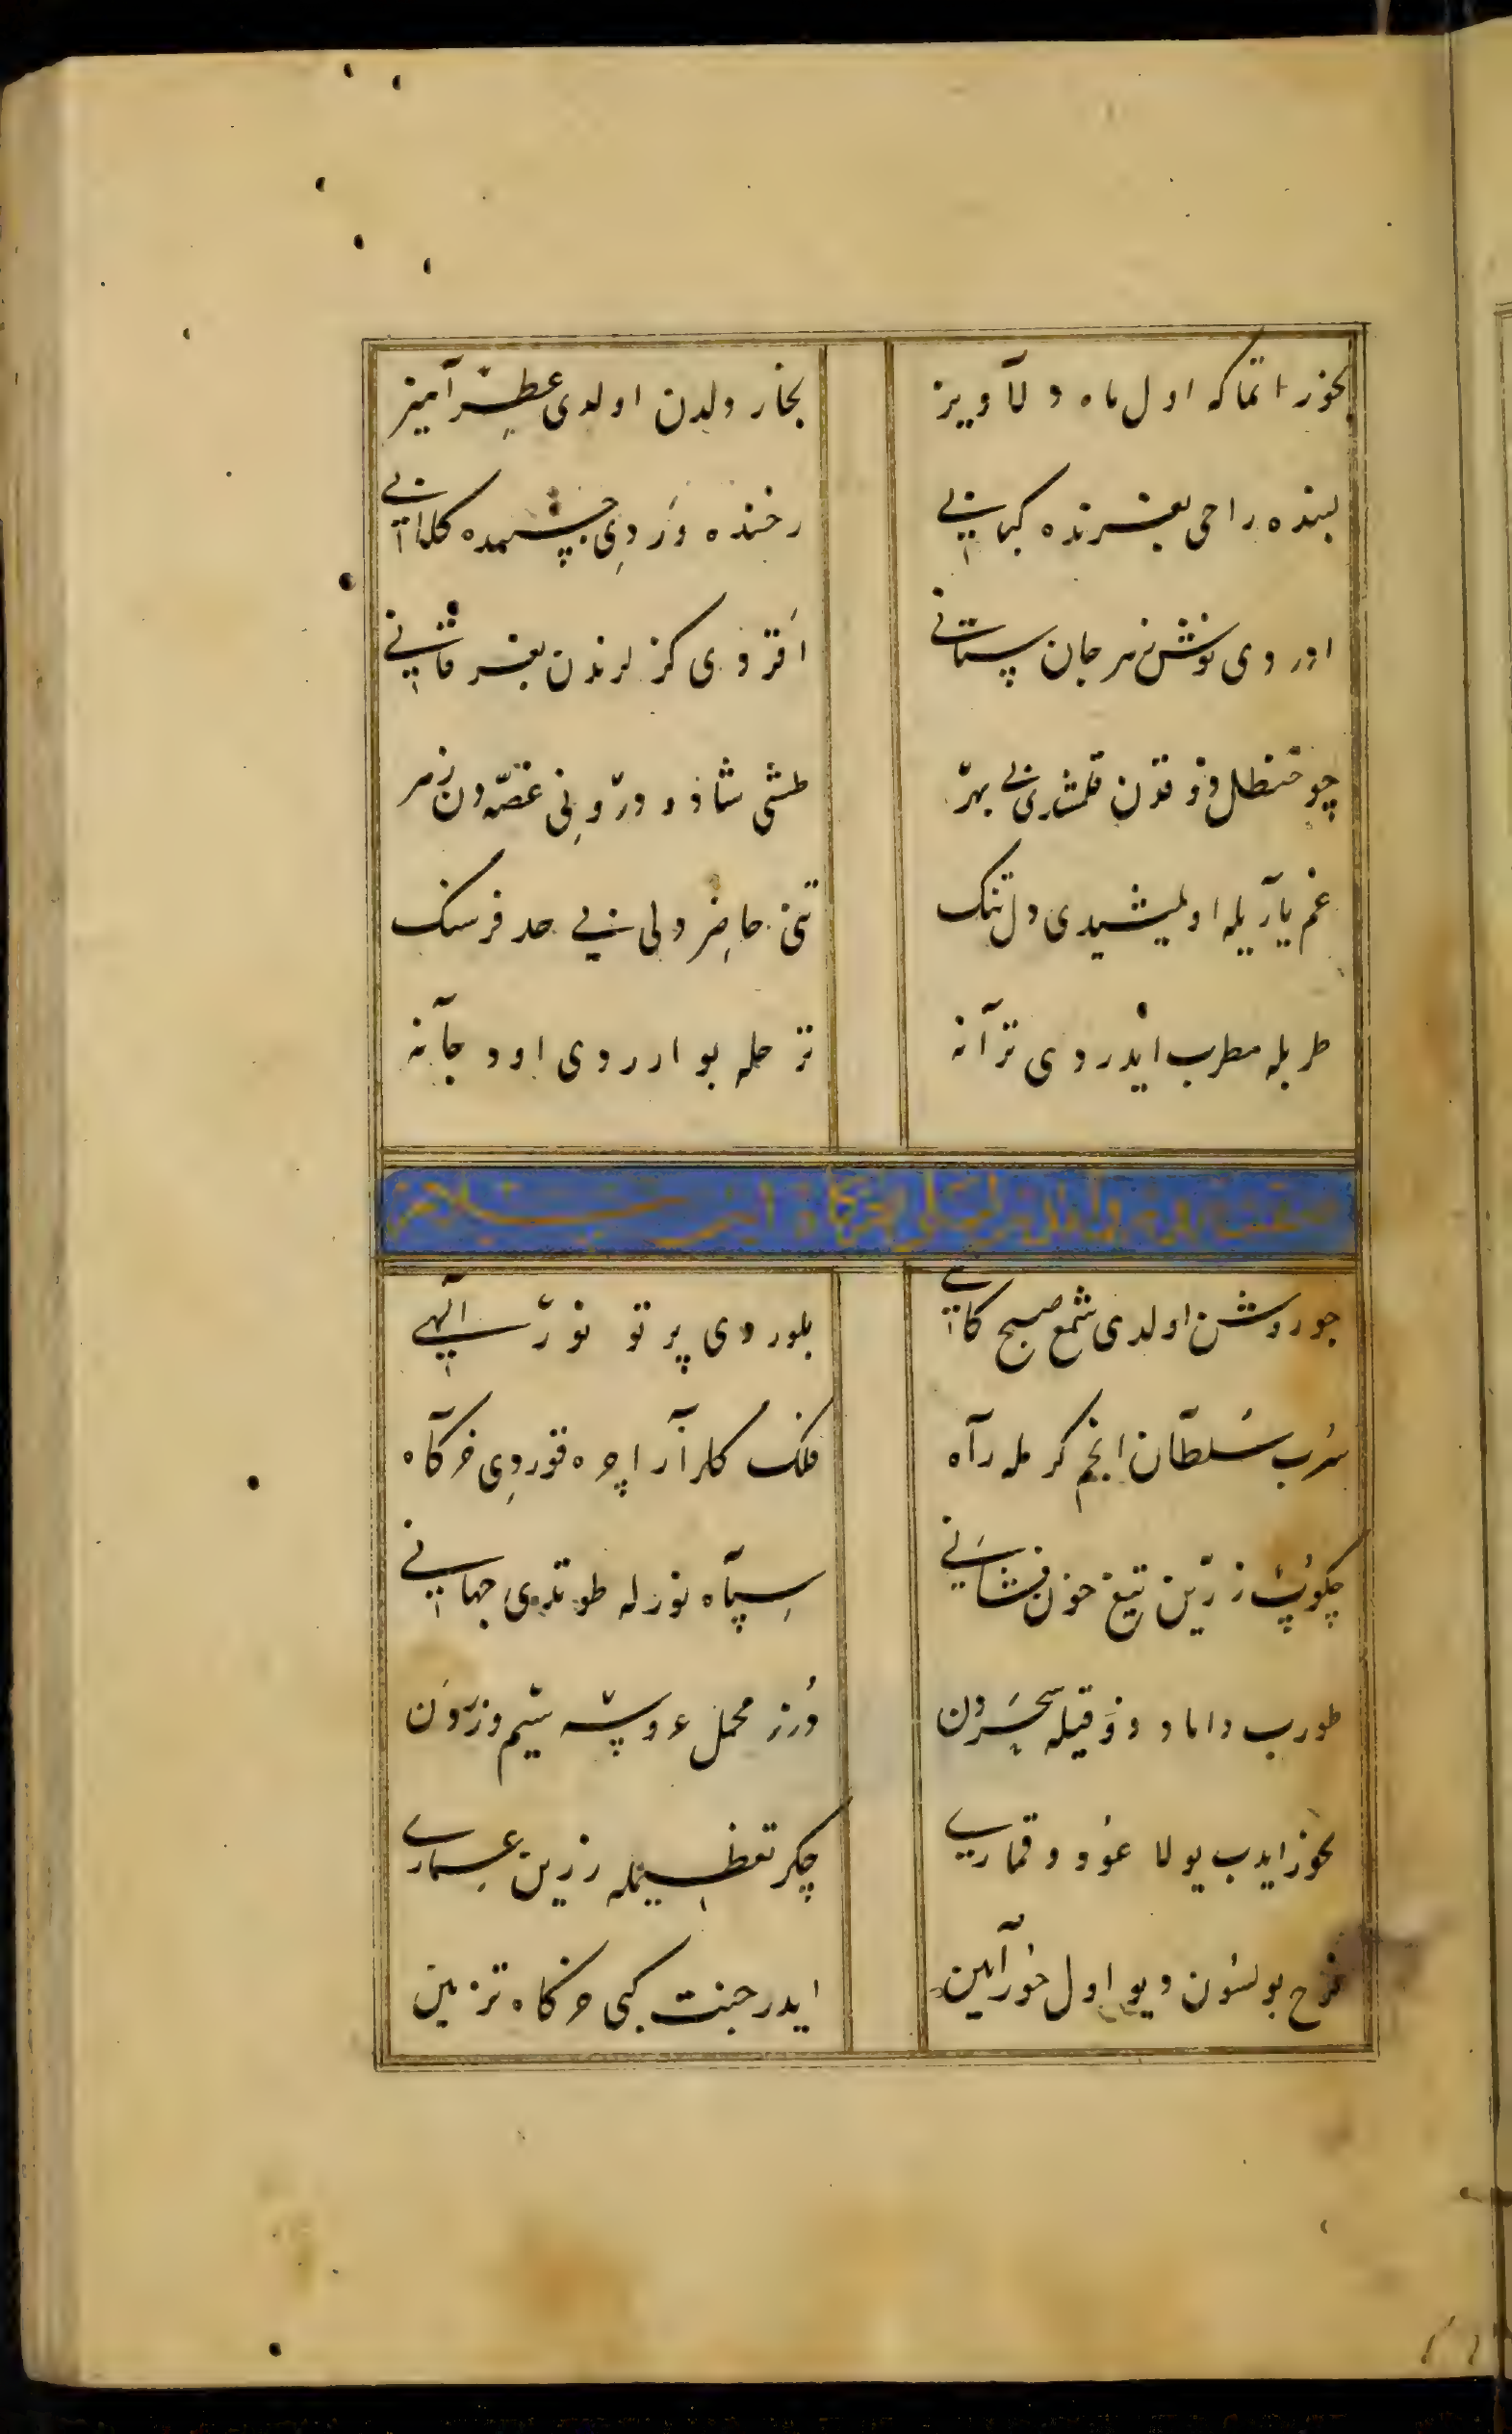 بخور اتماکه اول ماه دلآویز بخار ولدن اولدی عطرآمیز
لبنده راحی بغرنده کبابی رخنده وَردِی چشمده کلابی
اوردی نوش زهر جان ستانی اَقتردی کزلرندن بغر قانی
چو حنظل ذوقدن قلمشدی بی بهر طشی شاد و درونی غصّه دن زهر
غم یاریله اولمیشیدی دل تنک تنی حاضر ولی بی حد فرسنک
طربله مطرب ایدردی ترآنه ترحله بو اوردی اود جآنه
چو روشن اولدی شمع صبح کاهی بلوردی پرتو نور الٓهی
سُرب سُلطان انجم کرمله رآه فلک کلزار اچره قوردی خرکآه
چکوب زرّین تیغ خون فشانی سِپآه نورله طوتدی جهانی
طورب داماد ذوقیله سَحَردن دُرر محمل عروسه سیم و زردن
بخور ایدب یولا عود و قماری چکر تعظیمله زرین عماری
فرح بولسون دیو اول حُورآیین ایدر جنت کبی خرکاه تزیین